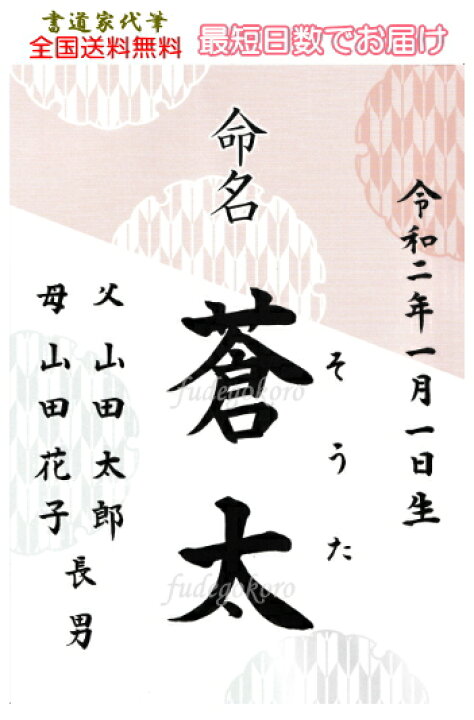 書道家代筆
全国送料無料
最短日数でお届け
令和二年一月一日生
命名
蒼太
そうた
父 山田太郎
母 山田花子
長男
fudegokoro
fudegokoro